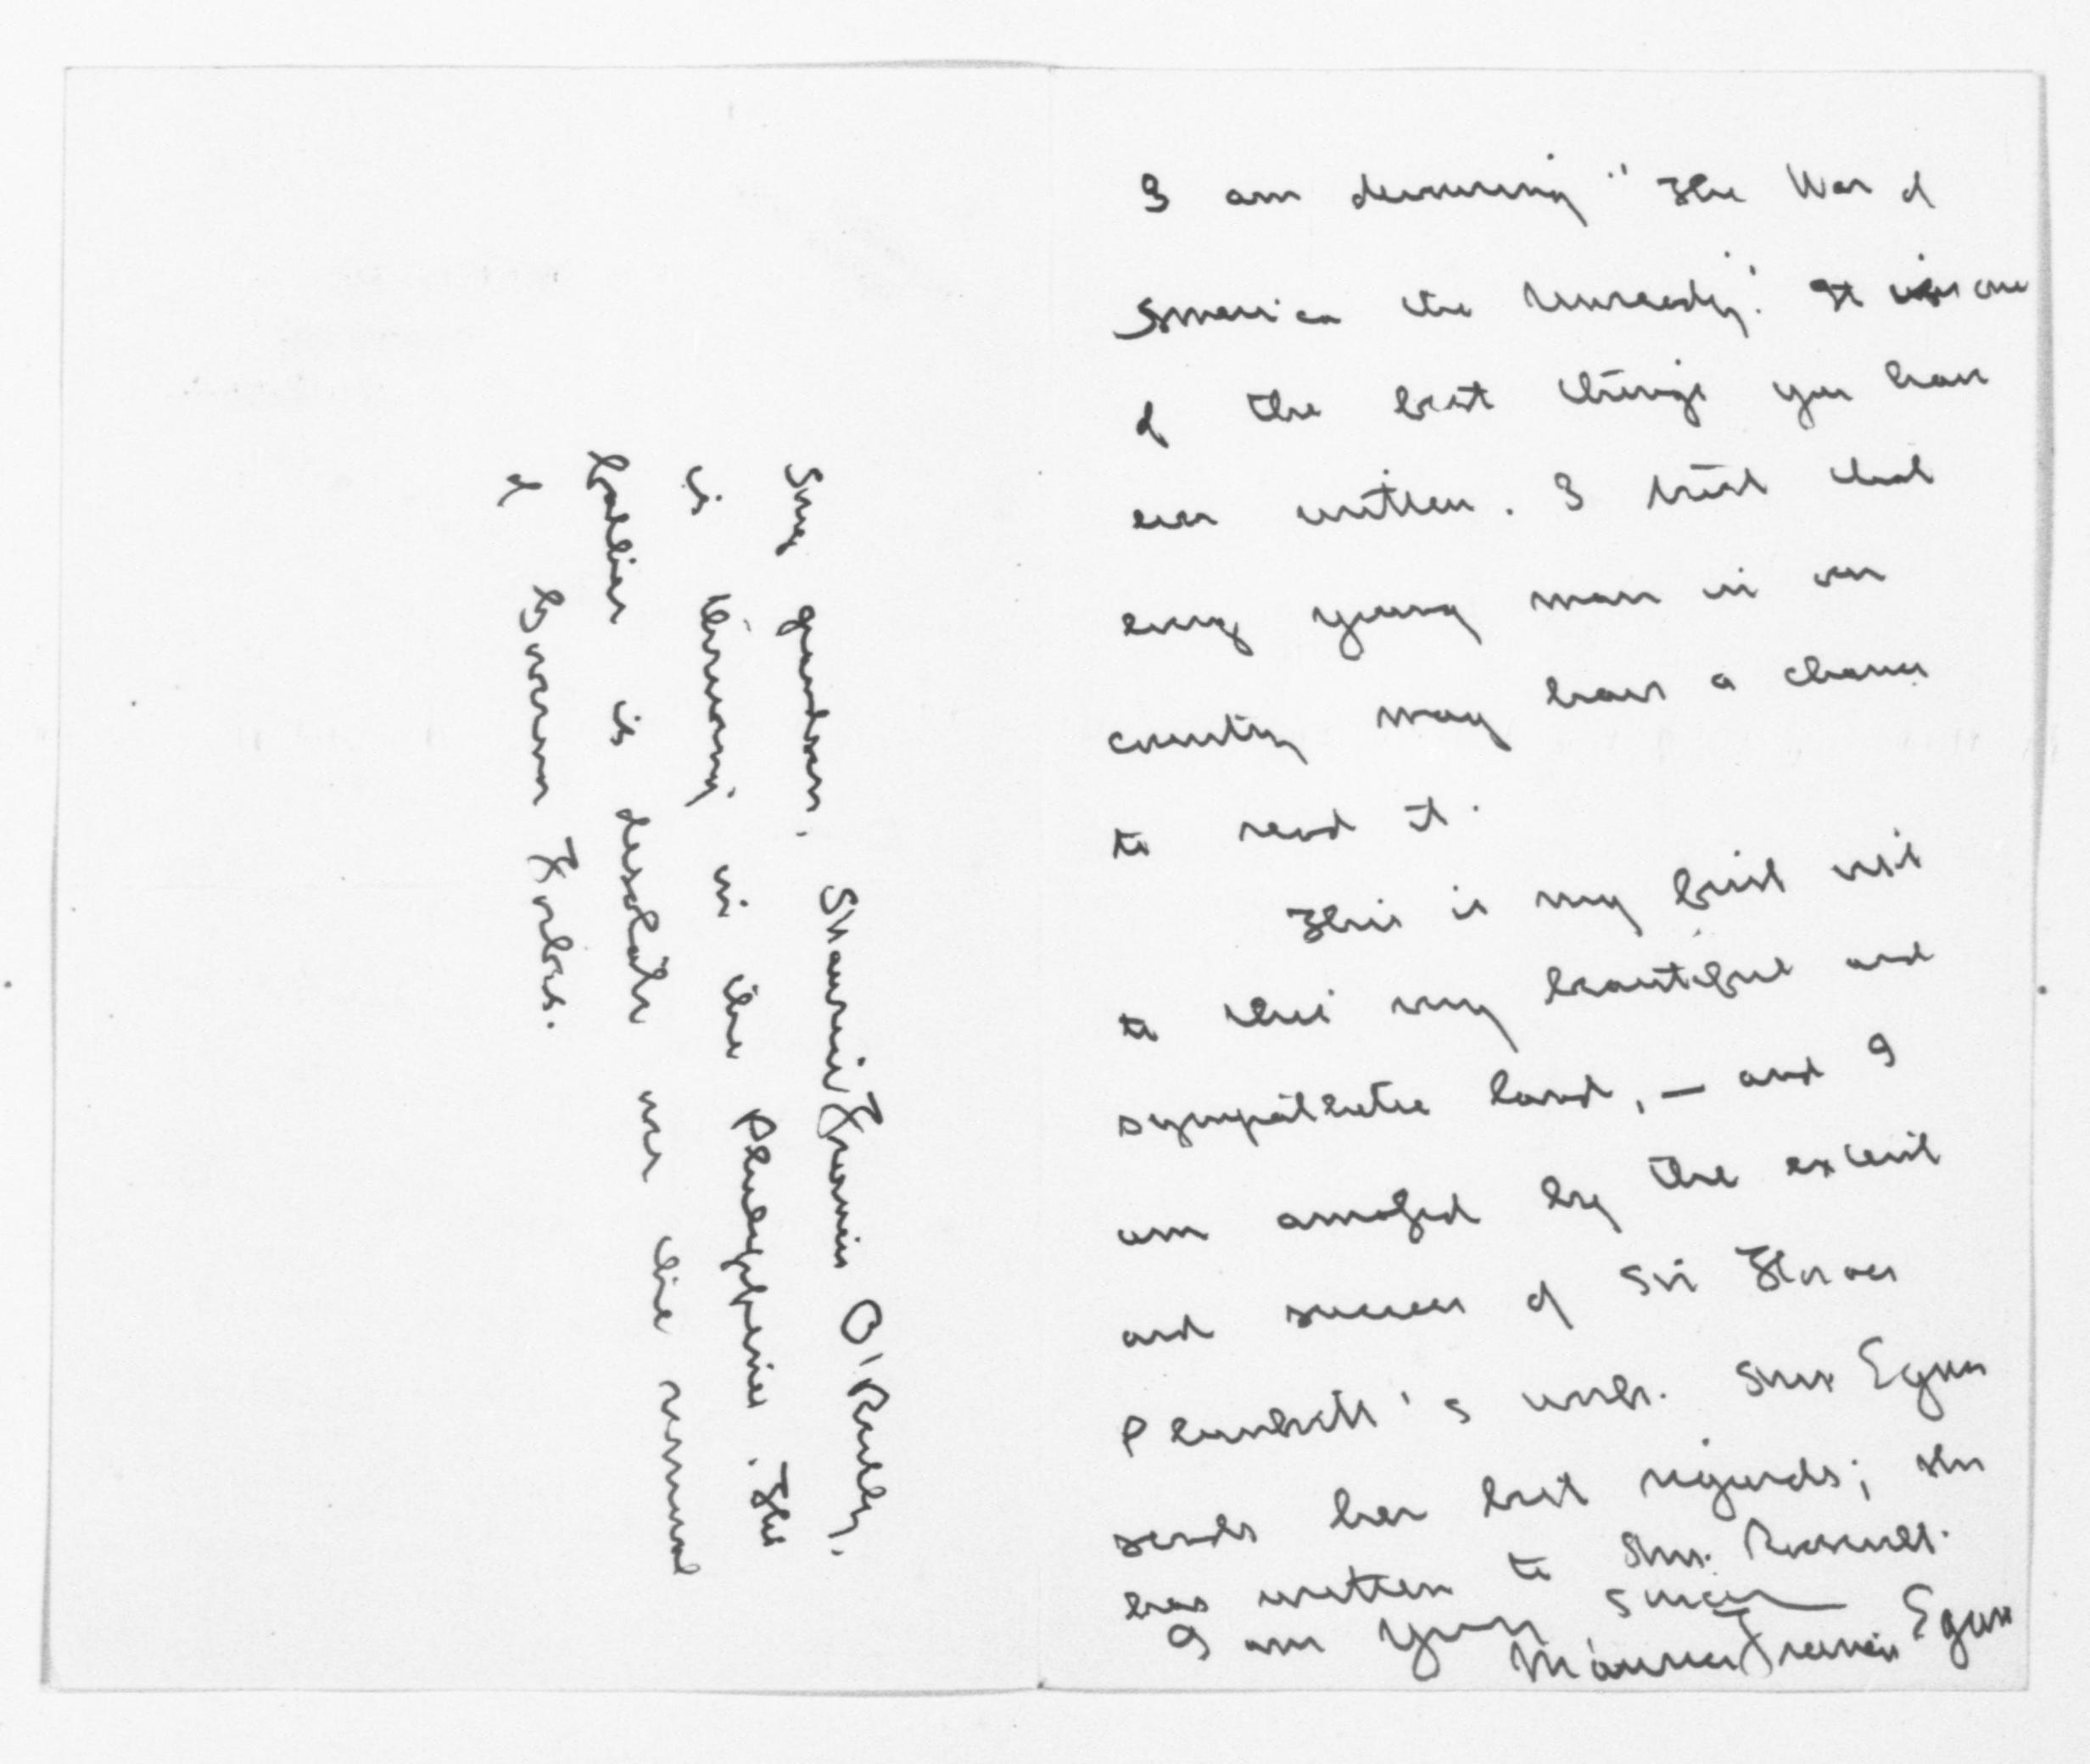 I am devouring "The War of
America the Unready." It is one
of the best things you have
ever written. I trust that
every young man in our
country may have a chance
to read it.
This is my first visit
to this very beautiful and
sympathetic land, — and I
am amazed by the extent
and success of Sir Horace
Plunkett's work. Mrs Egan
sends her best regards; she
has written to Mrs. Roosevelt.
I am yours sincerely
Maurice Francis Egan
My grandson, Maurice Francis O'Reilly,
is thriving in the Philippines. The
father is desolate over the removal
of Governor Forbes.